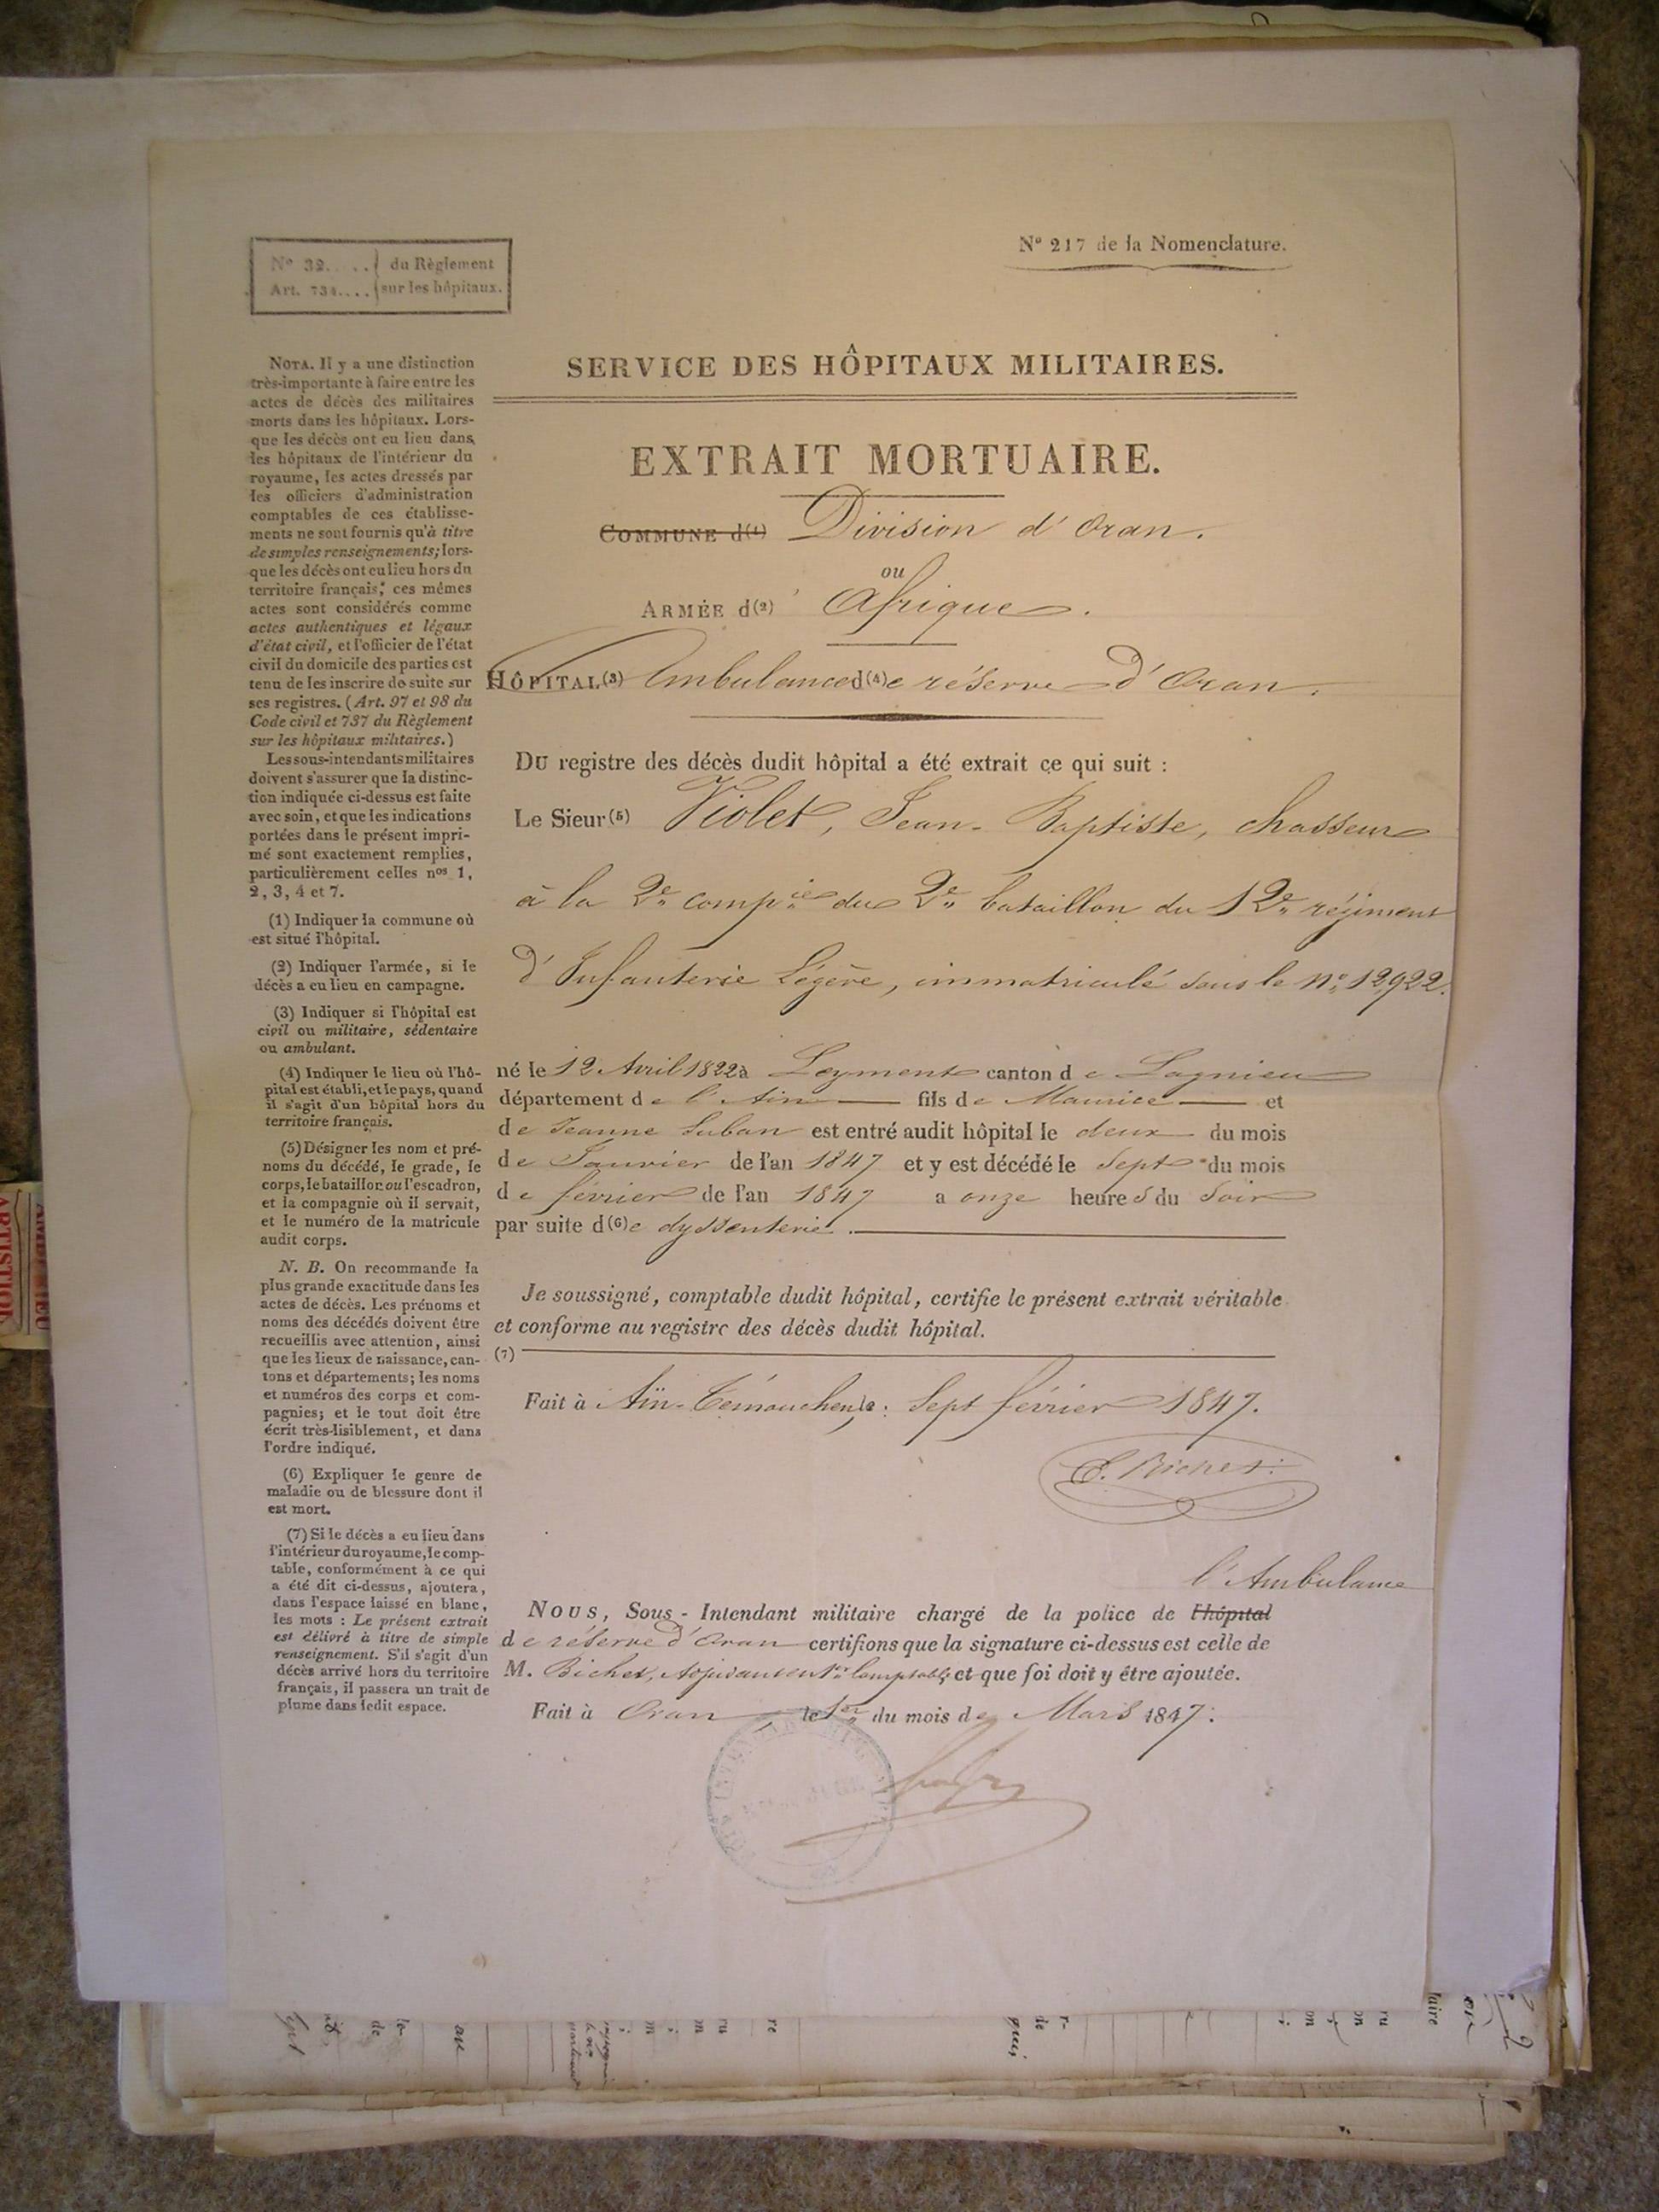 N° 32..... du Règlement
Art. 734.... sur les hôpitaux.
N° 217 de la Nomenclature.
NOTA. Il y a une distinction
très-importante à faire entre les
actes de décès des militaires
morts dans les hôpitaux. Lors-
que les décès ont eu lieu dans
les hôpitaux de l'intérieur du
royaume, les actes dressés par
les officiers d'administration
comptables de ces établisse-
ments ne sont fournis qu'à titre
de simples renseignements; lors-
que les décès ont eu lieu hors du
territoire français, ces mêmes
actes sont considérés comme
actes authentiques et légaux
d'état civil, et l'officier de l'état
civil du domicile des parties est
tenu de les inscrire de suite sur
ses registres. (Art. 97 et 98 du
Code civil et 737 du Règlement
sur les hôpitaux militaires.)
Les sous-intendants militaires
doivent s'assurer que la distinc-
tion indiquée ci-dessus est faite
avec soin, et que les indications
portées dans le présent impri-
mé sont exactement remplies,
particulièrement celles nos 1,
2, 3, 4 et 7.
(1) Indiquer la commune où
est situé l'hôpital.
(2) Indiquer l'armée, si le
décès a eu lieu en campagne.
(3) Indiquer si l'hôpital est
civil ou militaire, sédentaire
ou ambulant.
(4) Indiquer le lieu où l'hô-
pital est établi, et le pays, quand
il s'agit d'un hôpital hors du
territoire français.
(5) Désigner les nom et pré-
noms du décédé, le grade, le
corps, le bataillon ou l'escadron,
et la compagnie où il servait,
et le numéro de la matricule
audit corps.
N. B. On recommande la
plus grande exactitude dans les
actes de décès. Les prénoms et
noms des décédés doivent être
recueillis avec attention, ainsi
que les lieux de naissance, can-
tons et départements; les noms
et numéros des corps et com-
pagnies; et le tout doit être
écrit très-lisiblement, et dans
l'ordre indiqué.
(6) Expliquer le genre de
maladie ou de blessure dont il
est mort.
(7) Si le décès a eu lieu dans
l'intérieur du royaume, le comp-
table, conformément à ce qui
a été dit ci-dessus, ajoutera,
dans l'espace laissé en blanc,
les mots : Le présent extrait
est délivré à titre de simple
renseignement. S'il s'agit d'un
décès arrivé hors du territoire
français, il passera un trait de
plume dans ledit espace.
SERVICE DES HÔPITAUX MILITAIRES.
EXTRAIT MORTUAIRE.
COMMUNE d(1) Division d'Oran.
ou
ARMÉE d(2)' Afrique.
HÔPITAL(3) Ambulance d(4)e réserve d'Oran.
DU registre des décès dudit hôpital a été extrait ce qui suit :
Le Sieur(5) Violet, Jean-Baptiste, chasseur
à la 2e compie du 2e bataillon du 12e régiment
d'Infanterie Légère, immatriculé sous le n° 12922.
né le 12 Avril 1822 à Leyment canton de Lagnieu
département de l'Ain fils de Maurice et
de Jeanne Luban est entré audit hôpital le deux du mois
de Janvier de l'an 1847 et y est décédé le sept du mois
de février de l'an 1847 a onze heures du soir
par suite d(6)e dyssenterie.
Je soussigné, comptable dudit hôpital, certifie le présent extrait véritable
et conforme au registre des décès dudit hôpital.
(7)
Fait à Aïn-Témouchen, le : Sept février 1847.
E. Bichet
l'Ambulance
NOUS, Sous-Intendant militaire chargé de la police de l'hôpital
de réserve d'Oran certifions que la signature ci-dessus est celle de
M. Bichet, Comptable, et que foi doit y être ajoutée.
Fait à Oran, le 1er du mois de Mars 1847.